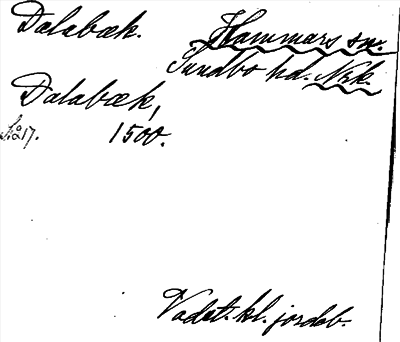 Dalabæk. Hammars sn.
Sundbo hd. Nrk.
Dalabæk,
S. 217. 1500.
Vadst. kl. jordeb.